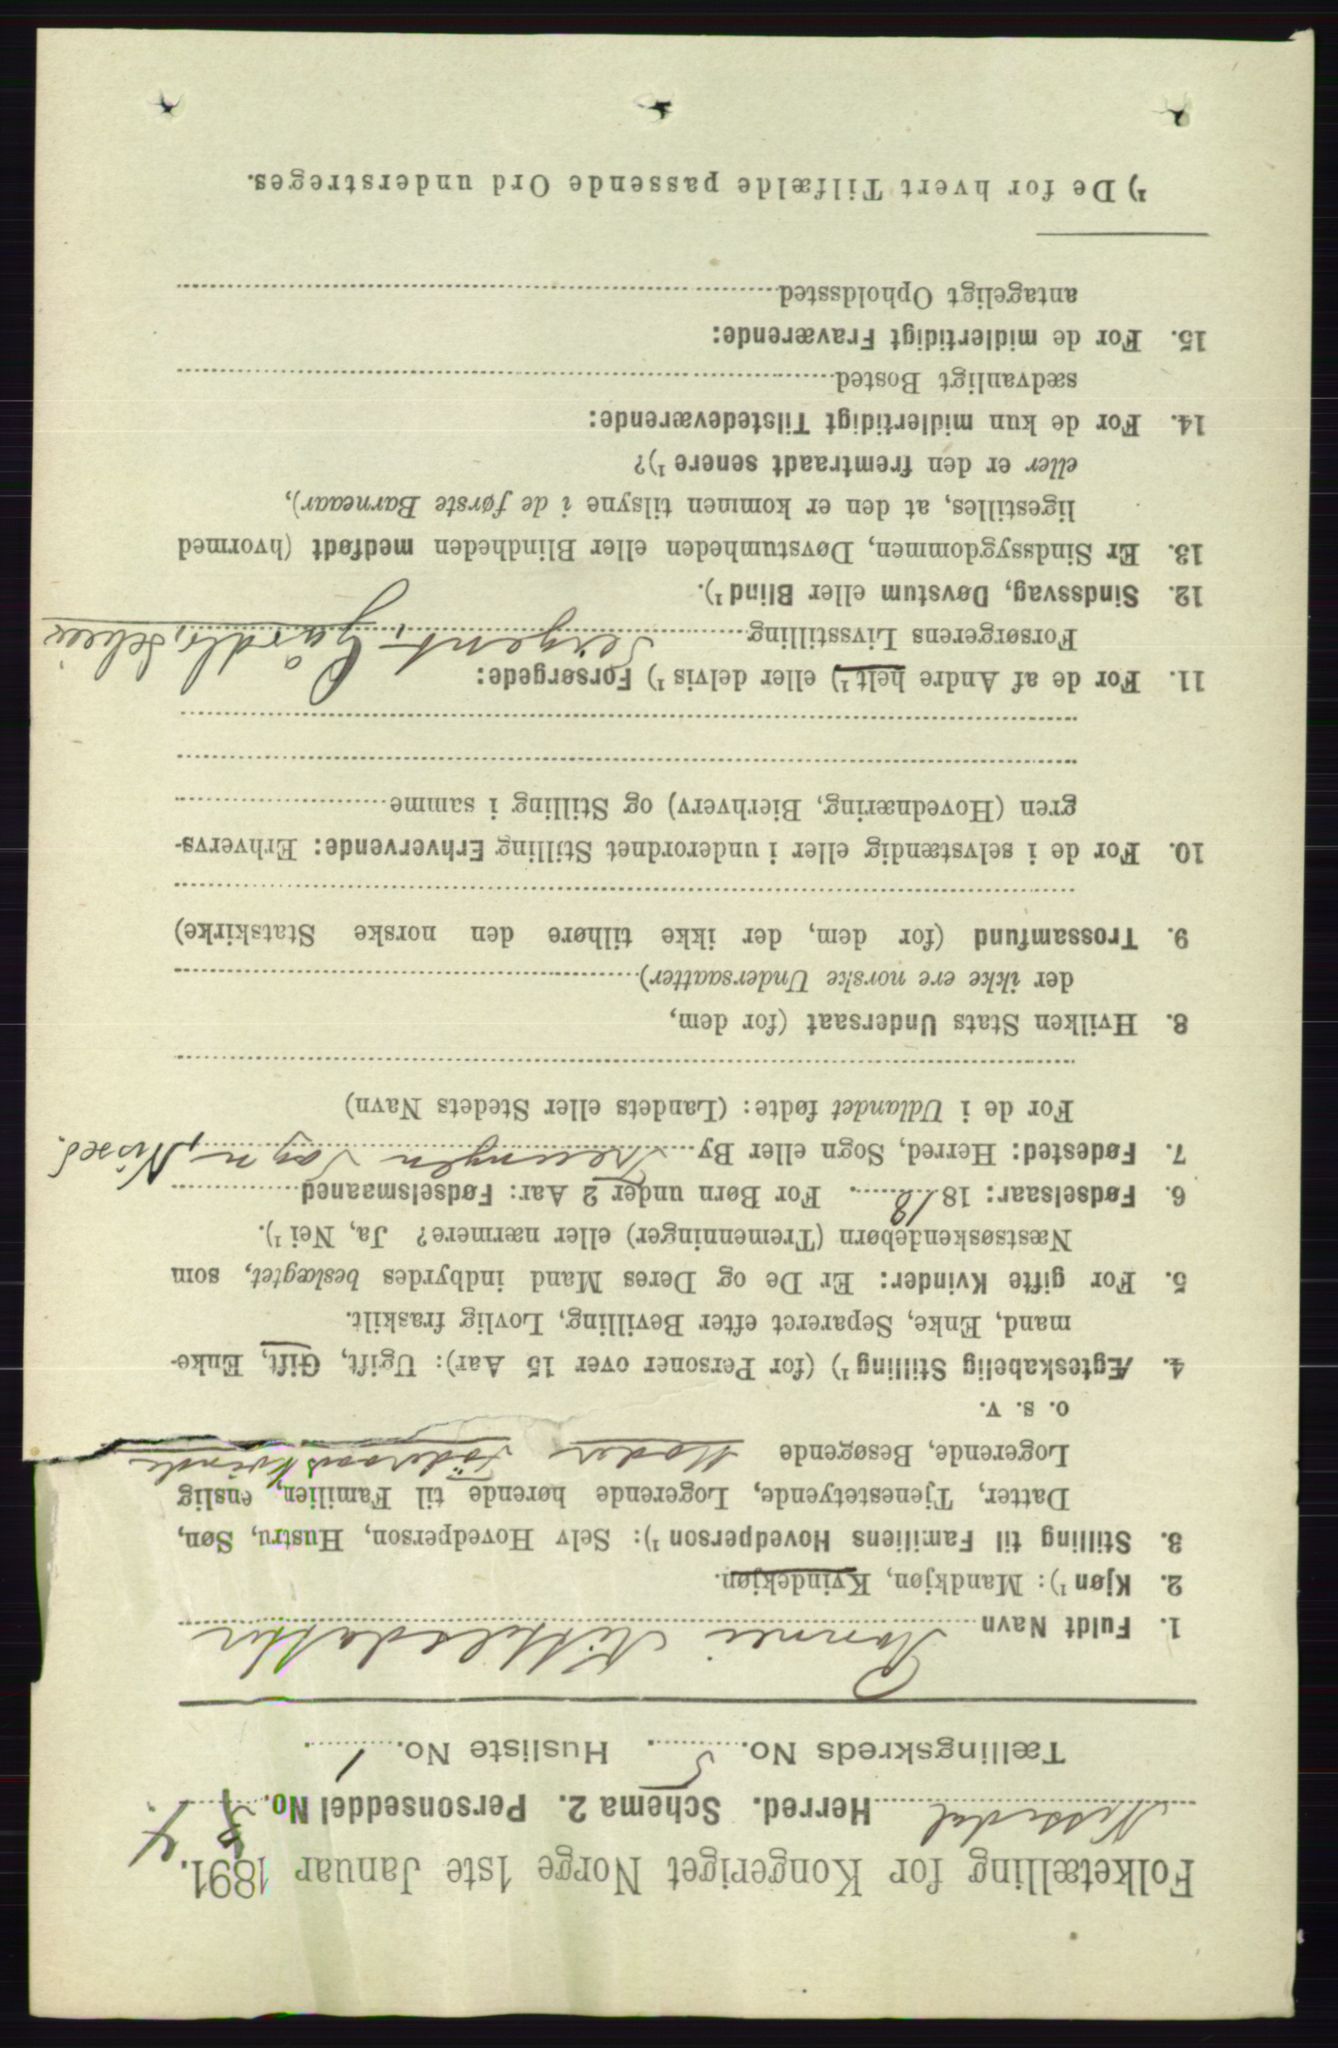 Folketælling for Kongeriget Norge 1ste Januar 1891.
Nissedal Herred. Schema 2. Personseddel No. 4.
Tællingskreds No. 5. Husliste No. 1.
1. Fuldt Navn Kittelsdatter
2. Kjøn ¹): Mandkjøn, Kvindekjøn.
3. Stilling til Familiens Hovedperson ¹): Selv Hovedperson, Hustru, Søn,
Datter, Tjenestetyende, Logerende hørende til Familien, enslig
Logerende, Besøgende Moder Föderaadskvinde
o. s. v.
4. Ægteskabelig Stilling ¹) (for Personer over 15 Aar): Ugift, Gift, Enke-
mand, Enke, Separeret efter Bevilling, Lovlig fraskilt.
5. For gifte Kvinder: Er De og Deres Mand indbyrdes beslægtet, som
Næstsøskendebørn (Tremenninger) eller nærmere? Ja, Nei ¹).
6. Fødselsaar: 1818. For Børn under 2 Aar: Fødselsmaaned
7. Fødested: Herred, Sogn eller By Treungen Sogn, Nissed.
For de i Udlandet fødte: (Landets eller Stedets Navn)
8. Hvilken Stats Undersaat (for dem,
der ikke ere norske Undersaatter)
9. Trossamfund (for dem, der ikke tilhøre den norske Statskirke)
10. For de i selvstændig eller i underordnet Stilling Erhvervende: Erhvervs-
gren (Hovednæring, Bierhverv) og Stilling i samme
11. For de af Andre helt ¹) eller delvis ¹) Forsørgede:
Forsørgerens Livsstilling Sergent, Gårdbr, Selveier
12. Sindssvag, Døvstum eller Blind ¹).
13. Er Sindssygdommen, Døvstumheden eller Blindheden medfødt (hvormed
ligestilles, at den er kommen tilsyne i de første Barneaar),
eller er den fremtraadt senere ¹)?
14. For de kun midlertidigt Tilstedeværende:
sædvanligt Bosted
15. For de midlertidigt Fraværende:
antageligt Opholdssted
¹) De for hvert Tilfælde passende Ord understreges.